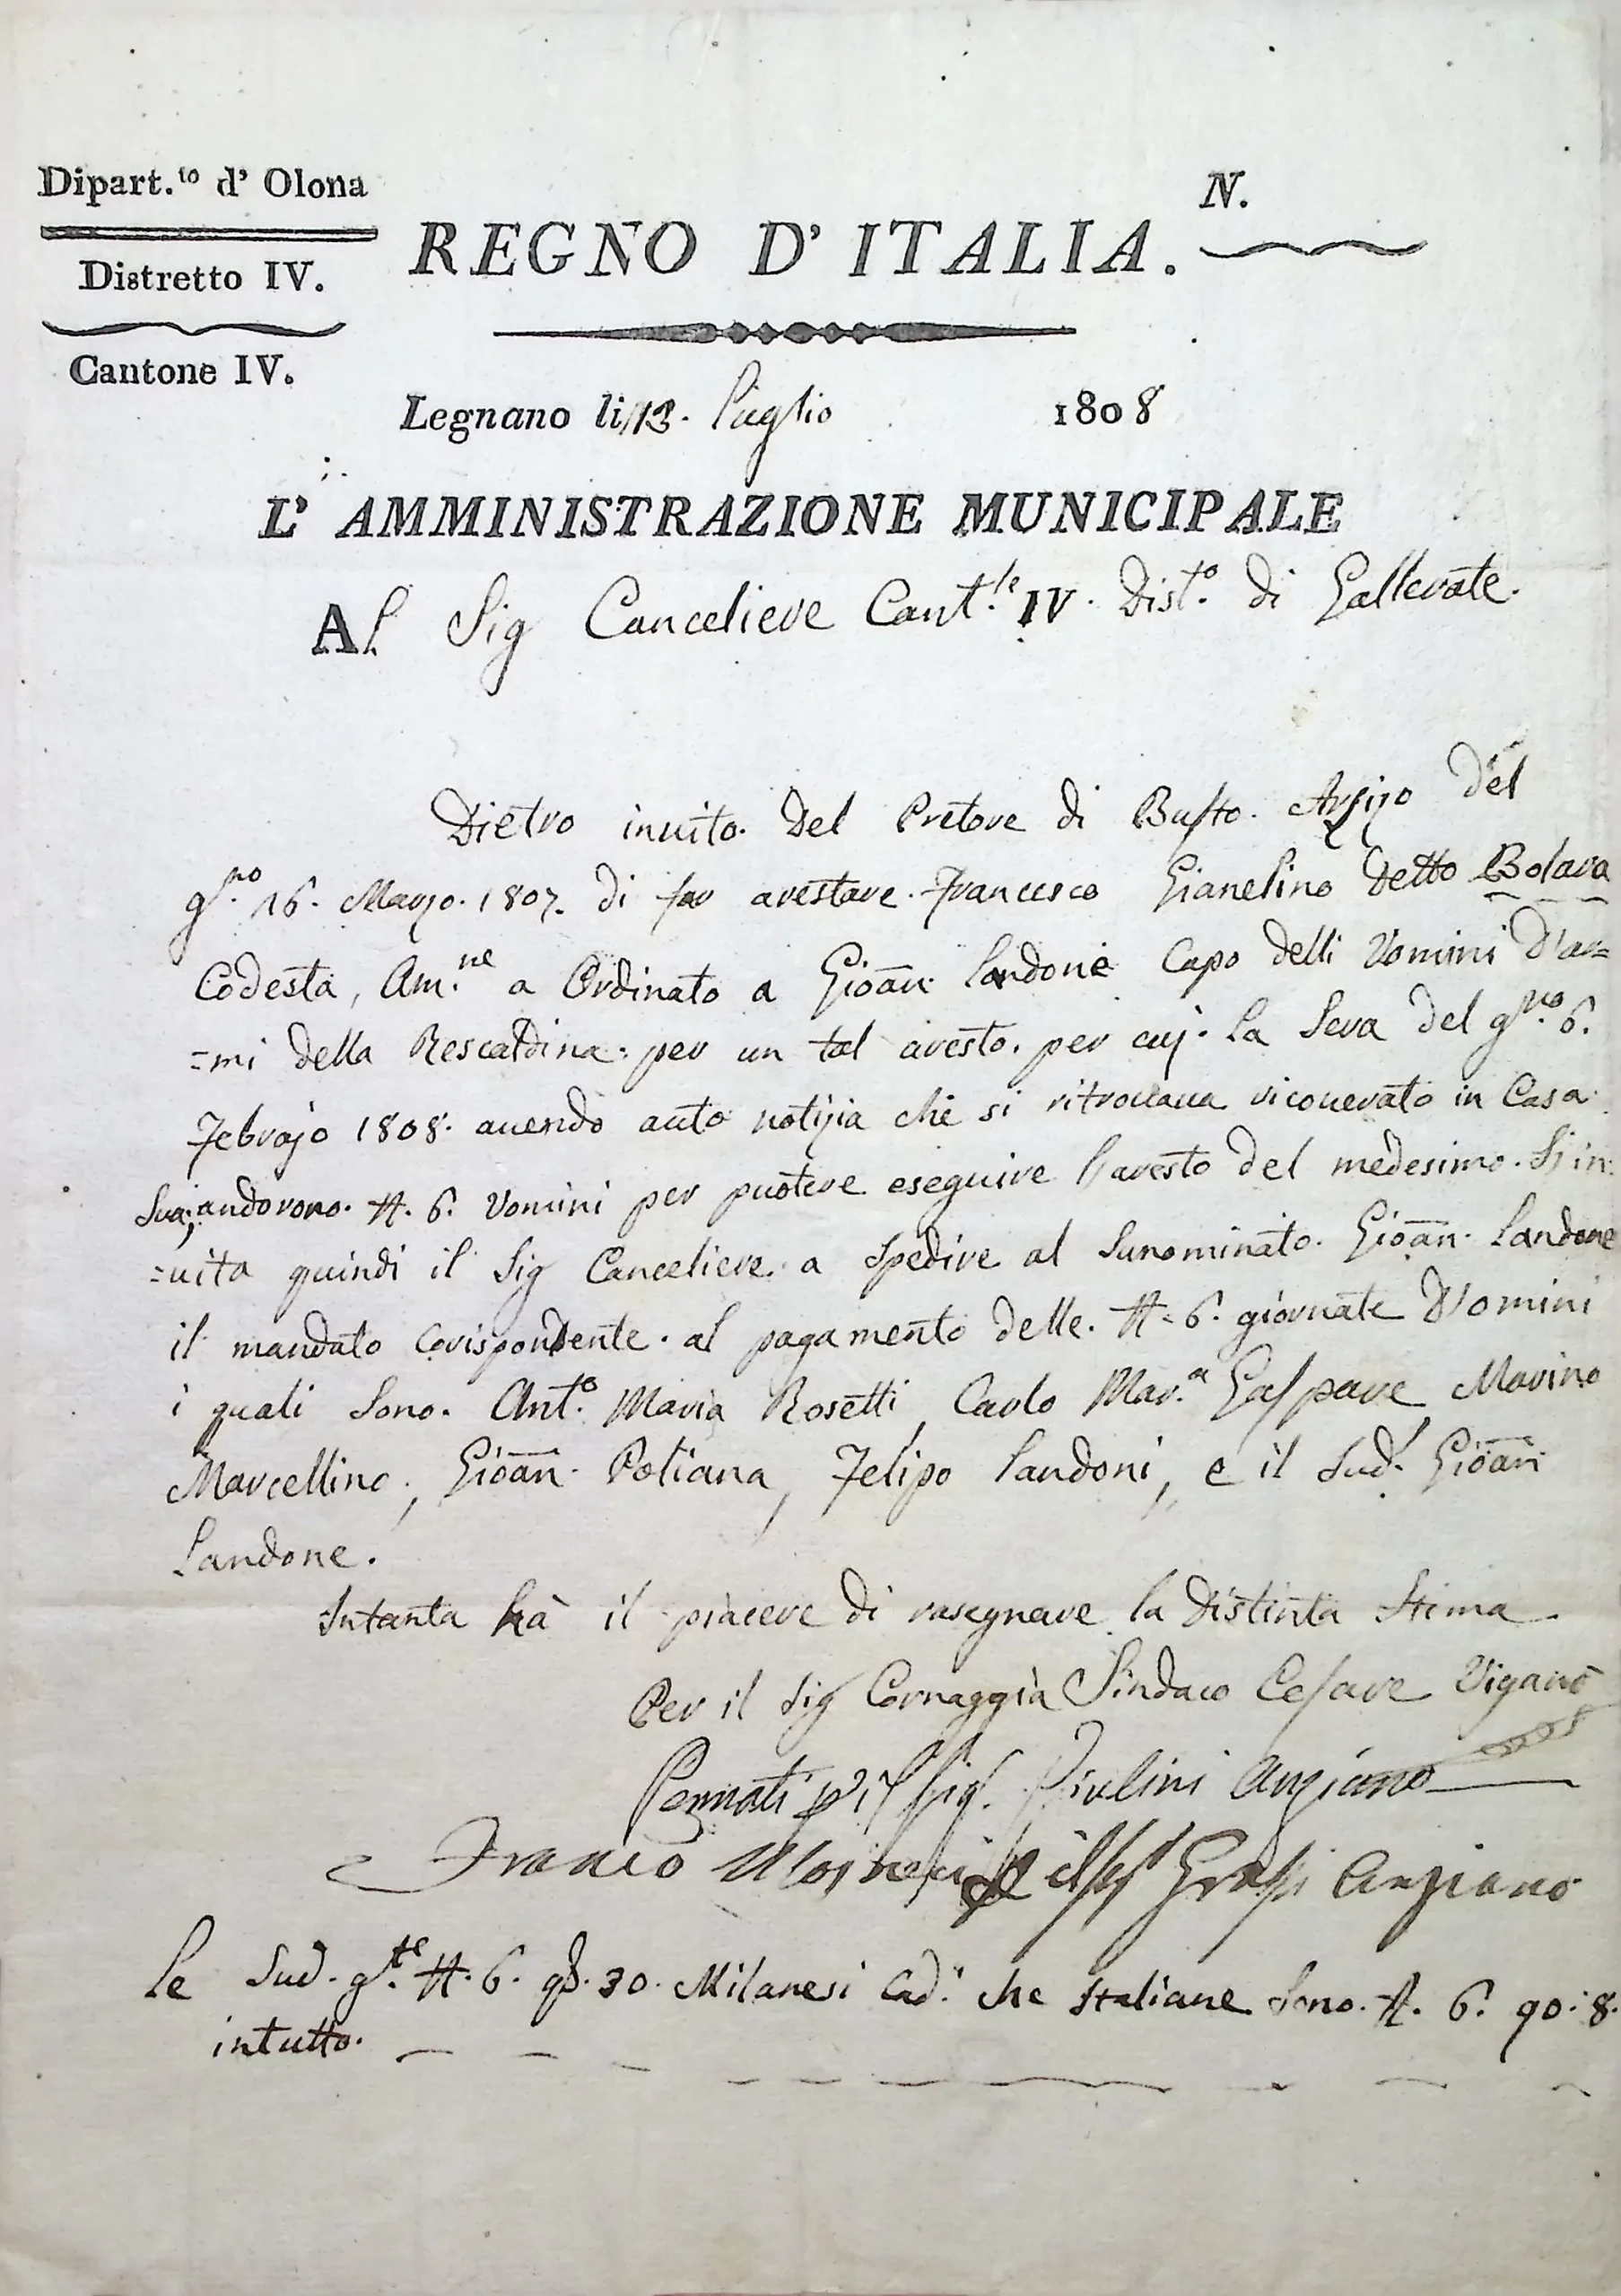 Dipart.to d' Olona
N.
REGNO D' ITALIA.
Distretto IV.
Cantone IV.
Legnano li 13. Luglio 1808
L' AMMINISTRAZIONE MUNICIPALE
Al Sig Canceliere Cant.le IV. Dist.o di Gallerate.
Dietro inuito. del Pretore di Busto. Arsizo del
g.no 16. Marzo. 1807. di far arestare. Francesco Gianelino detto Bolara
Codesta, Am.ne a Ordinato a Gioan. Landone Capo delli Uomini d'ar=
=mi della Rescaldina. per un tal aresto. per cuj. la Sera del g.no 6.
Febrajo 1808. auendo auto notizia che si ritrouaua ricouerato in Casa
Sua; andorono. N. 6. Uomini per puotere eseguire l'aresto del medesimo. Si in:
=uita quindi il Sig Canceliere. a Spedire al Sunominato. Gioan. Landone
il mandato Corispondente. al pagamento delle. N. 6. giornate d'Uomini
i quali Sono. Ant.o Maria Rosetti, Carlo Mar.a Gaspare Marino
Marcellino, Gioan. Poliana, Felipo Landoni, e il Sud. Gioan
Landone.
Intanta hà il piacere di rasegnare la Distinta Stima.
Per il Sig Cornaggia Sindaco Cesare Viganò
Pennati p il Sig. Anziano
Franco il Sig Anziano
le Sud. g.te N. 6. 30. Milanesi Cad. che Italiane Sono. 6. 90: 8.
intutto.